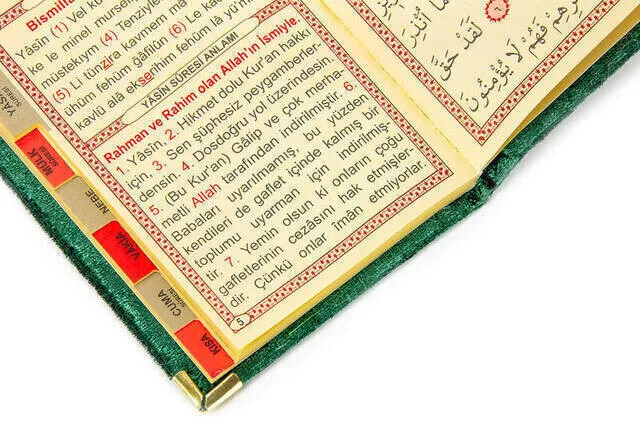 Bismille
Yâsîn (1) Vel ku
ke le minel mursel
müstekıym (4) Tenziyle
(5) Li tünzira kavmem mâ
ühüm fehüm ğâfilûn (6) Le ka
kavlü alâ ekserihim fehüm lâ yü'mi
YÂSÎN SÛRESİ ANLAMI
Rahman ve Rahim olan Allah'ın İsmiyle.
1. Yâsîn, 2. Hikmet dolu Kur'an hakkı
için, 3. Sen şüphesiz peygamberler-
densin. 4. Dosdoğru yol üzerindesin.
5. (Bu Kur'an) Gâlip ve çok merha-
metli Allah tarafından indirilmiştir. 6.
Babaları uyarılmamış, bu yüzden
kendileri de gaflet içinde kalmış bir
toplumu uyarman için indirilmiş-
tir. 7. Yemin olsun ki onların çoğu
gafletlerinin cezâsını hak etmişler-
dir. Çünkü onlar îmân etmiyorlar.
5
YÂSÎN
SÛRESİ
MÜLK
SÛRESİ
NEBE
VAKIA
CUMA
SÛRESİ
KISA
لَقَدْ حَقَّ
فَهُمْ لَا يُؤْمِنُونَ